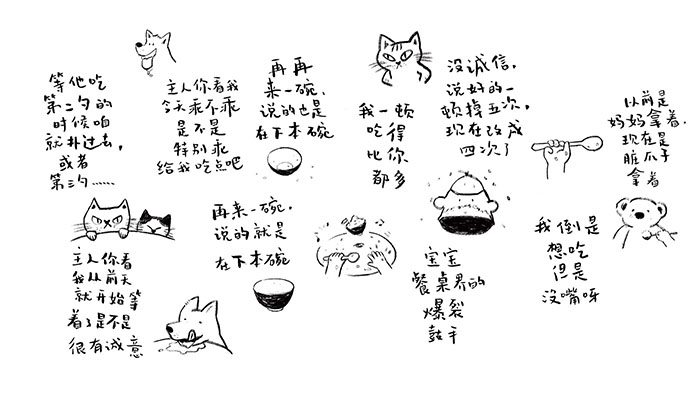 等他吃
第二勺的
时候咱
就扑过去，
或者
第三勺……
主人你看我
今天乖不乖
是不是
特别乖
给我吃点吧
再再
来一碗，
说的也是
在下本碗
我一顿
吃得
比你
都多
没诚信，
说好的一
顿揍五次，
现在改成
四次了
以前是
妈妈拿着，
现在是
脏爪子
拿着
主人你看
我从前天
就开始等
着了是不是
很有诚意
再来一碗，
说的就是
在下本碗
宝宝
餐桌界的
爆裂
鼓手
我倒是
想吃
但是
没嘴呀